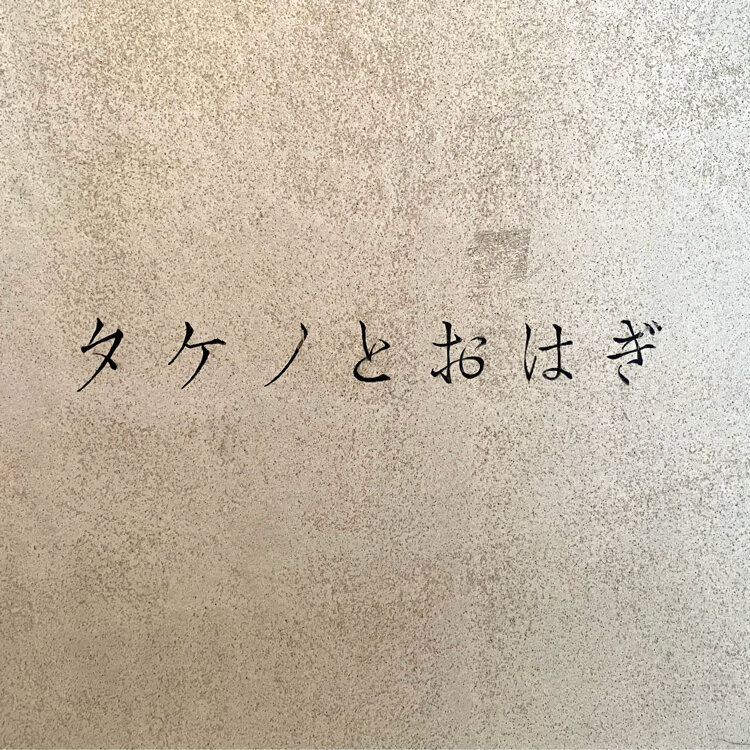 タケノとおはぎ